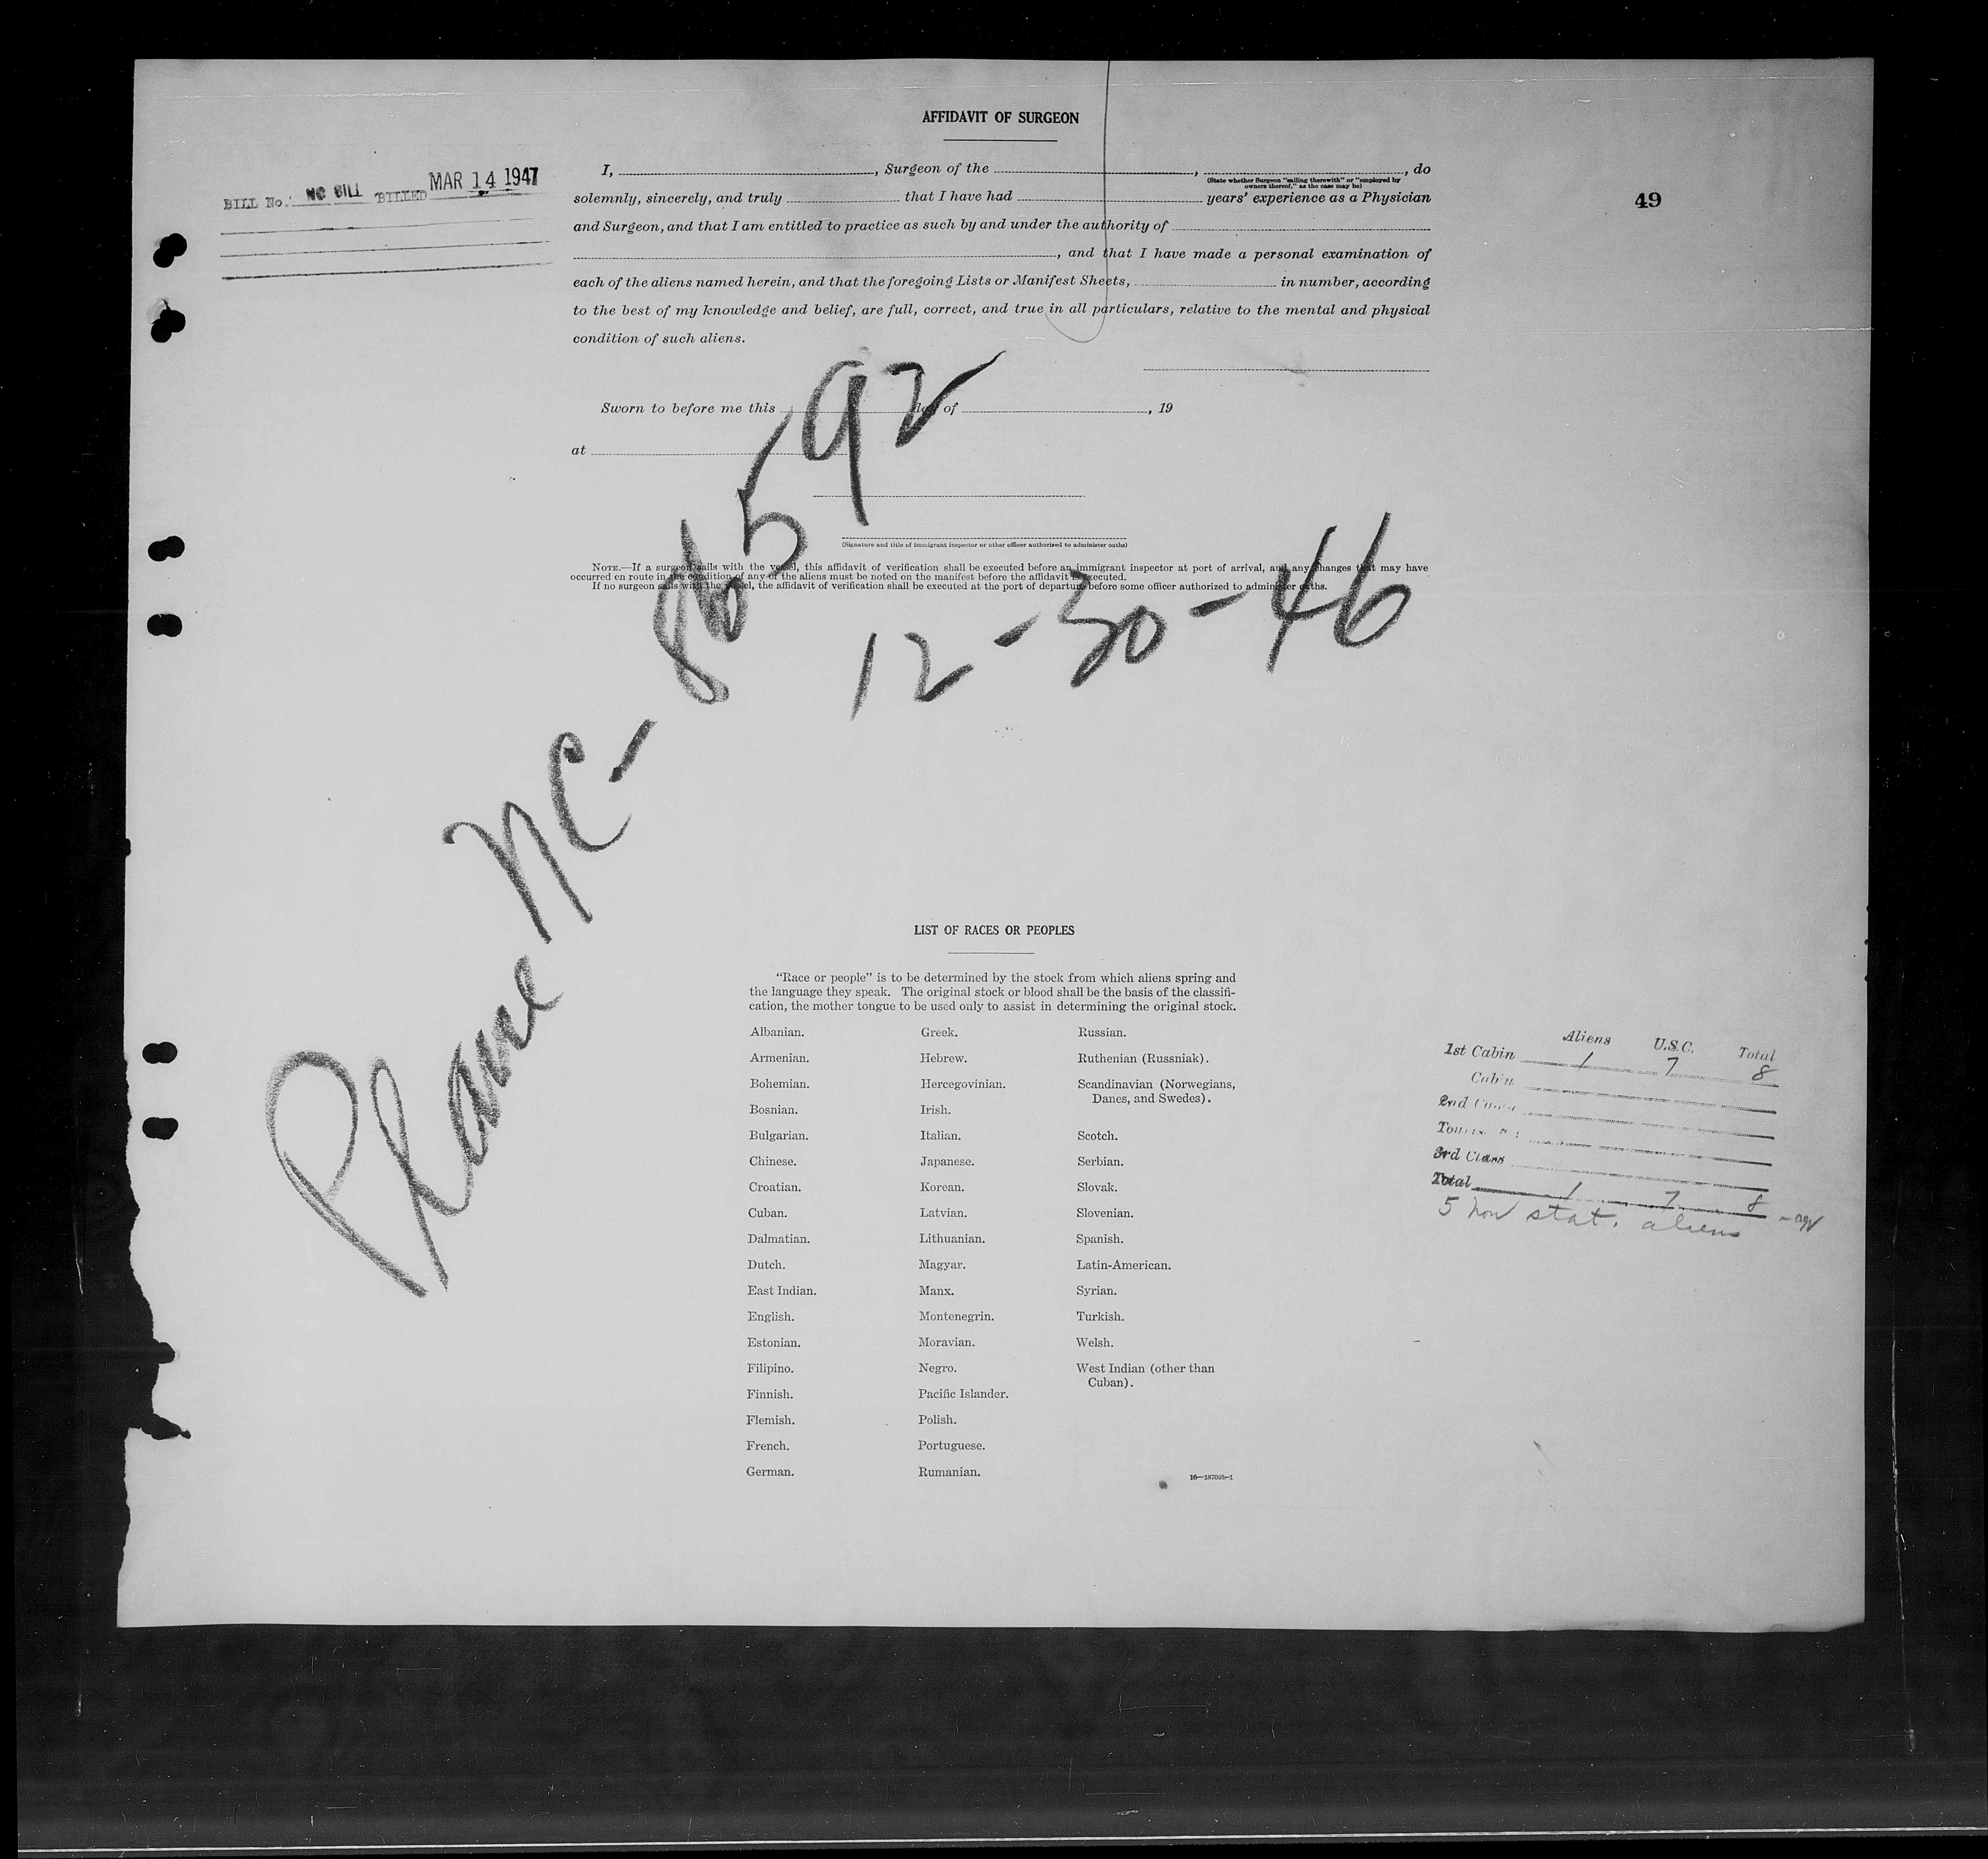 AFFIDAVIT OF SURGEON
BILL No. NO BILL BILLED MAR 14 1947
49
I, , Surgeon of the , , do
(State whether Surgeon "sailing therewith" or "employed by
owners thereof," as the case may be)
solemnly, sincerely, and truly that I have had years' experience as a Physician
and Surgeon, and that I am entitled to practice as such by and under the authority of
, and that I have made a personal examination of
each of the aliens named herein, and that the foregoing Lists or Manifest Sheets, in number, according
to the best of my knowledge and belief, are full, correct, and true in all particulars, relative to the mental and physical
condition of such aliens.
Sworn to before me this day of , 19
at
(Signature and title of immigrant inspector or other officer authorized to administer oaths)
NOTE.—If a surgeon sails with the vessel, this affidavit of verification shall be executed before an immigrant inspector at port of arrival, and any changes that may have
occurred en route in the condition of any of the aliens must be noted on the manifest before the affidavit is executed.
If no surgeon sails with the vessel, the affidavit of verification shall be executed at the port of departure before some officer authorized to administer oaths.
Plane NC-86592
12-30-46
LIST OF RACES OR PEOPLES
"Race or people" is to be determined by the stock from which aliens spring and
the language they speak. The original stock or blood shall be the basis of the classifi-
cation, the mother tongue to be used only to assist in determining the original stock.
Albanian.
Armenian.
Bohemian.
Bosnian.
Bulgarian.
Chinese.
Croatian.
Cuban.
Dalmatian.
Dutch.
East Indian.
English.
Estonian.
Filipino.
Finnish.
Flemish.
French.
German.
Greek.
Hebrew.
Hercegovinian.
Irish.
Italian.
Japanese.
Korean.
Latvian.
Lithuanian.
Magyar.
Manx.
Montenegrin.
Moravian.
Negro.
Pacific Islander.
Polish.
Portuguese.
Rumanian.
Russian.
Ruthenian (Russniak).
Scandinavian (Norwegians,
Danes, and Swedes).
Scotch.
Serbian.
Slovak.
Slovenian.
Spanish.
Latin-American.
Syrian.
Turkish.
Welsh.
West Indian (other than
Cuban).
Aliens U.S.C. Total
1st Cabin 1 7 8
Cabin
2nd Cabin
3rd Class
Total 1 7 8
5 non stat. aliens